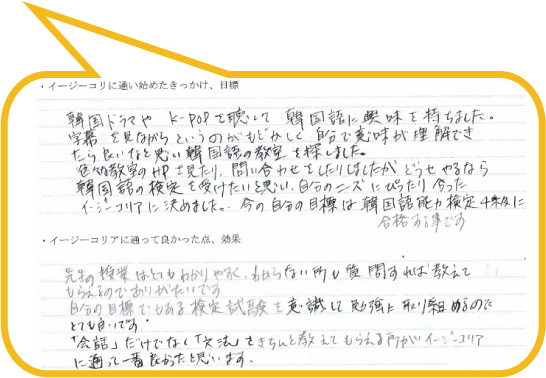 ・イージーコリに通い始めたきっかけ、目標
韓国ドラマや K-POPを聴して 韓国語に興味を持ちました。
字幕を見ながらというのがもどかしく 自分で意味が理解でき
たら良いなと思い韓国語の教室を探しました。
色々な教室のHPを見たり、問い合わせをしたりしましたが どうせやるなら
韓国語の検定を受けたいと思い、自分のニーズにぴったり合った
イージーコリアに決めました。今の自分の目標は韓国語能力検定4級に
合格する事です
・イージーコリアに通って良かった点、効果
先生の授業はとてもわかりやすく、わからない所も質問すれば教えて
もらえるのでありがたいです
自分の目標でもある検定試験を意識して勉強に取り組めるので
とても良いです。
「会話」だけでなく「文法」をきちんと教えてもらえる所がイージーコリア
に通って一番良かったと思います。